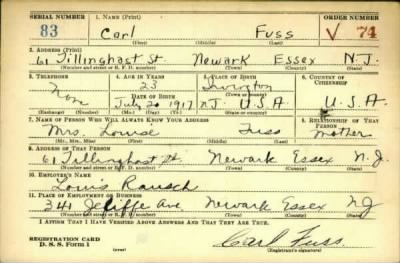 SERIAL NUMBER 1. NAME (Print) ORDER NUMBER
83 Carl Fuss V 74
(First) (Middle) (Last)
2. ADDRESS (Print)
61 Tillinghast St. Newark Essex N.J.
(Number and street or R. F. D. number) (Town) (County) (State)
3. TELEPHONE 4. AGE IN YEARS 5. PLACE OF BIRTH 6. COUNTRY OF CITIZENSHIP
None 23 Irvington
DATE OF BIRTH
July 20 1917 N.J. U.S.A. U.S.A.
7. NAME OF PERSON WHO WILL ALWAYS KNOW YOUR ADDRESS 8. RELATIONSHIP OF THAT PERSON
Mrs. Louise Fuss Mother
(Mr., Mrs., Miss) (First) (Middle) (Last)
9. ADDRESS OF THAT PERSON
61 Tillinghast St. Newark Essex N.J.
(Number and street or R. F. D. number) (Town) (County) (State)
10. EMPLOYER'S NAME
Louis Rausch
11. PLACE OF EMPLOYMENT OR BUSINESS
341 Jeliffe Ave Newark Essex NJ
(Number and street or R. F. D. number) (Town) (County) (State)
I AFFIRM THAT I HAVE VERIFIED ABOVE ANSWERS AND THAT THEY ARE TRUE.
REGISTRATION CARD
D. S. S. Form 1 Carl Fuss
(Registrant's signature)